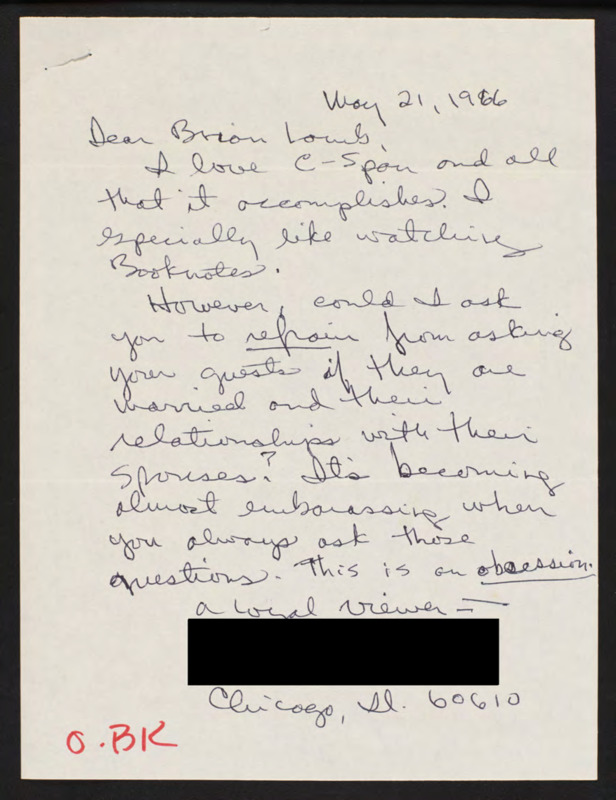 May 21, 1986
Dear Brian Lamb,
I love C-Span and all
that it accomplishes. I
especially like watching
Booknotes.
However, could I ask
you to refrain from asking
your guests if they are
married and their
relationships with their
spouses? It's becoming
almost embarassing when
you always ask those
questions. This is an obsession.
a loyal viewer —
Chicago, Il. 60610
O.BK